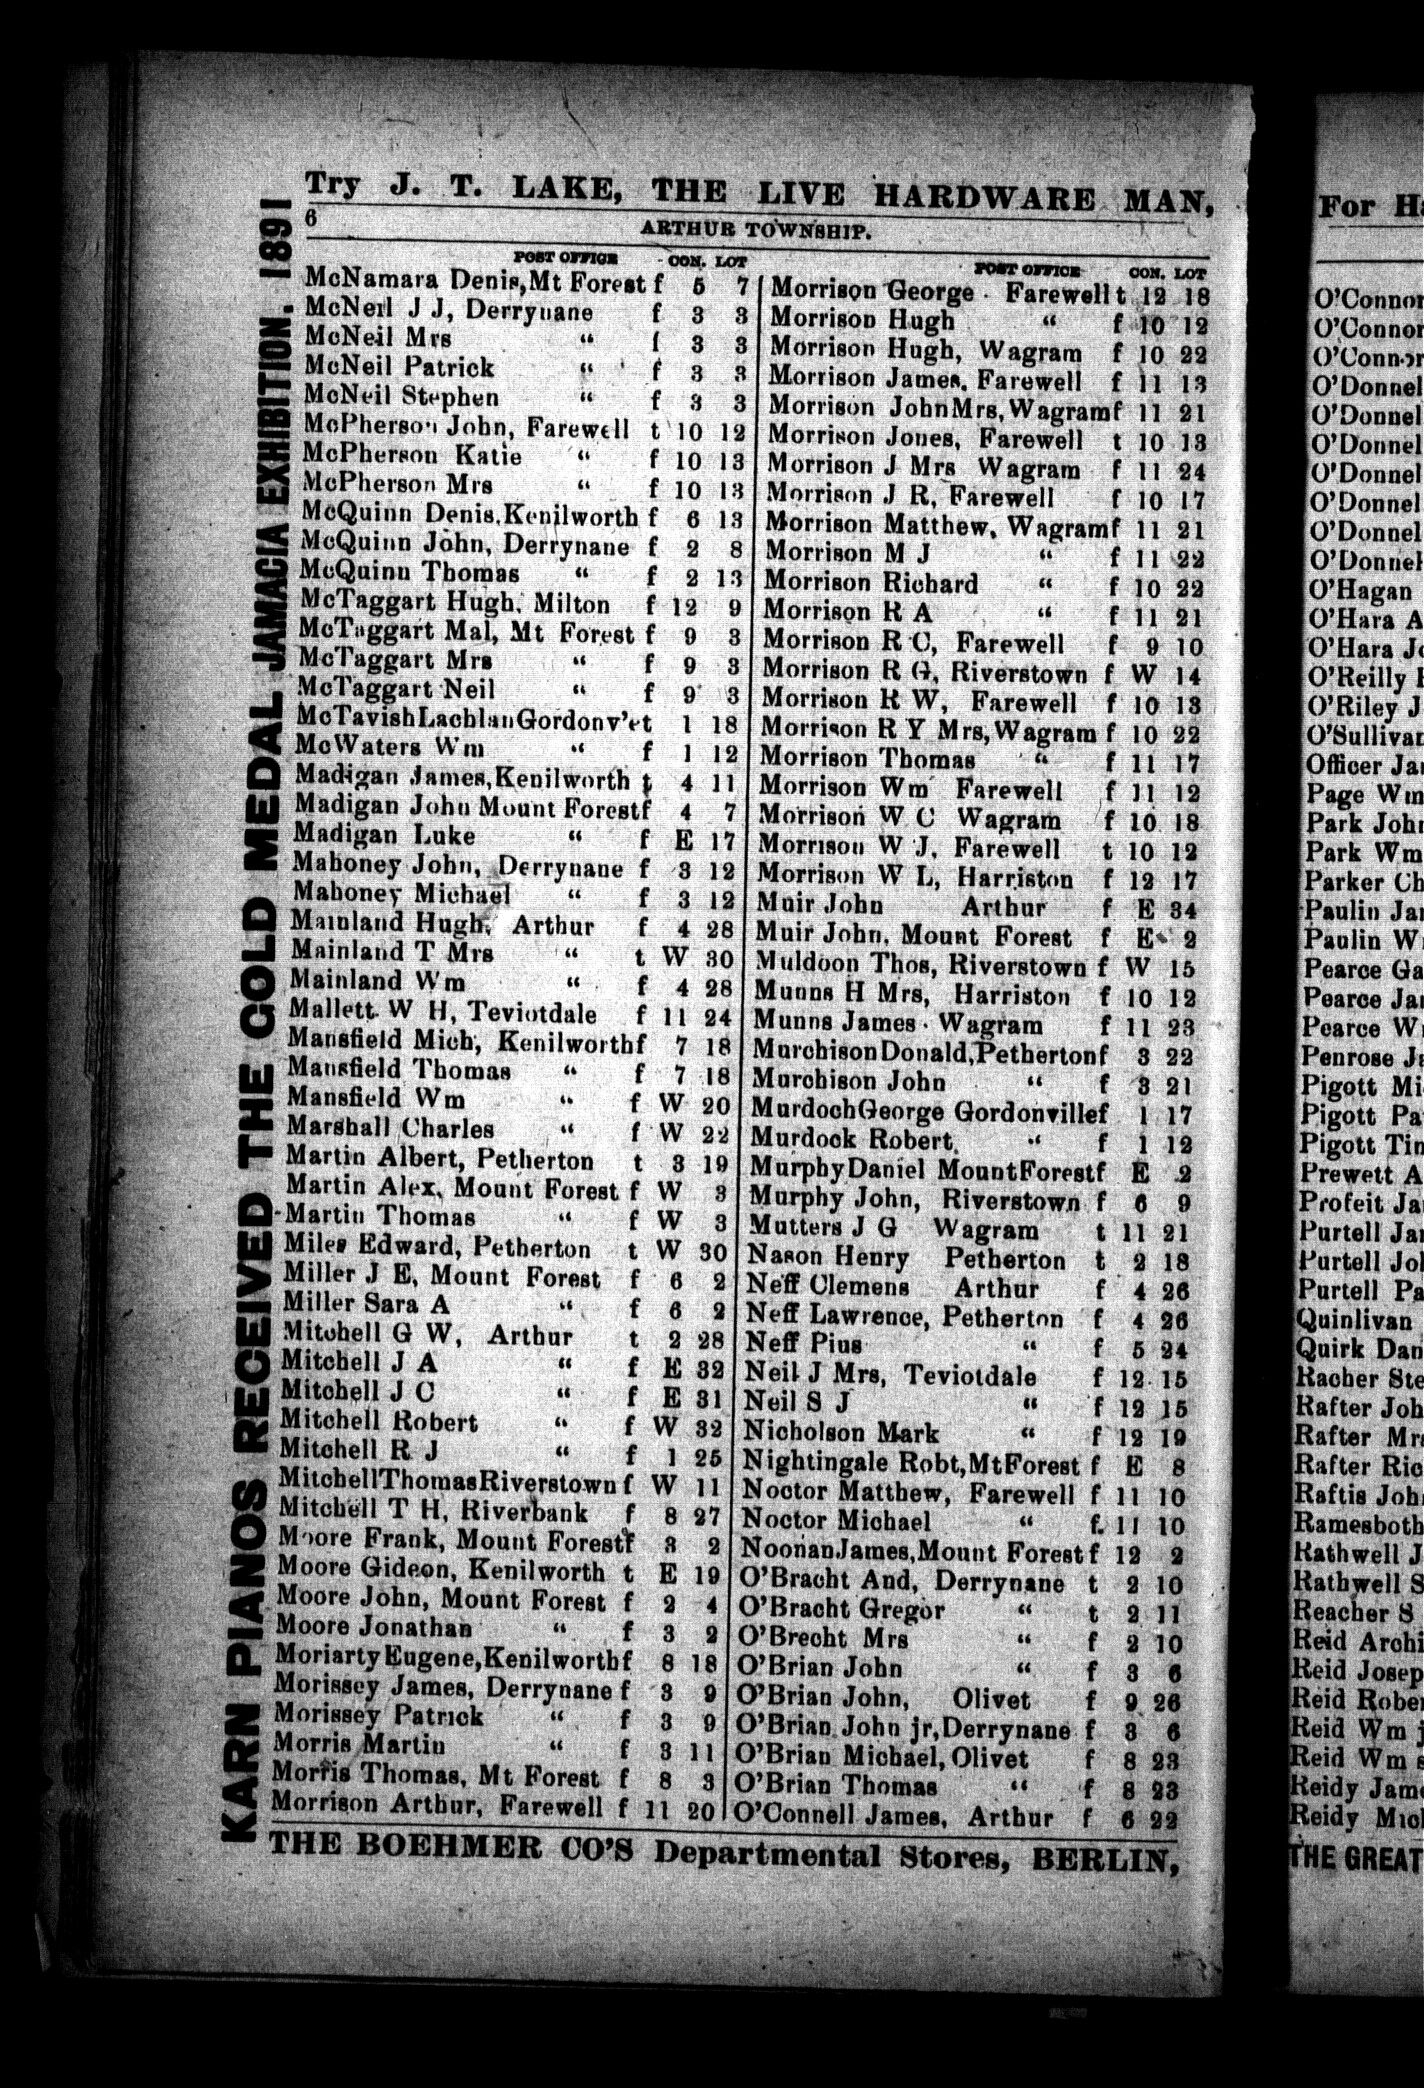 Try J. T. LAKE, THE LIVE HARDWARE MAN,
6
ARTHUR TOWNSHIP.
KARN PIANOS RECEIVED THE GOLD MEDAL JAMACIA EXHIBITION. 1891
POST OFFICE CON. LOT
McNamara Denis, Mt Forest f 5 7
McNeil J J, Derrynane f 3 3
McNeil Mrs “ f 3 3
McNeil Patrick “ f 3 3
McNeil Stephen “ f 3 3
McPherson John, Farewell t 10 12
McPherson Katie “ f 10 13
McPherson Mrs “ f 10 13
McQuinn Denis, Kenilworth f 6 13
McQuinn John, Derrynane f 2 8
McQuinn Thomas “ f 2 13
McTaggart Hugh, Milton f 12 9
McTaggart Mal, Mt Forest f 9 3
McTaggart Mrs “ f 9 3
McTaggart Neil “ f 9 3
McTavish Lachlan Gordonv'et 1 18
McWaters Wm “ f 1 12
Madigan James, Kenilworth t 4 11
Madigan John Mount Forest f 4 7
Madigan Luke “ f E 17
Mahoney John, Derrynane f 3 12
Mahoney Michael “ f 3 12
Mainland Hugh, Arthur f 4 28
Mainland T Mrs “ t W 30
Mainland Wm “ f 4 28
Mallett W H, Teviotdale f 11 24
Mansfield Mich, Kenilworth f 7 18
Mansfield Thomas “ f 7 18
Mansfield Wm “ f W 20
Marshall Charles “ f W 22
Martin Albert, Petherton t 3 19
Martin Alex, Mount Forest f W 3
Martin Thomas “ f W 3
Miles Edward, Petherton t W 30
Miller J E, Mount Forest f 6 2
Miller Sara A “ f 6 2
Mitchell G W, Arthur t 2 28
Mitchell J A “ f E 32
Mitchell J C “ f E 31
Mitchell Robert “ f W 32
Mitchell R J “ f 1 25
Mitchell Thomas Riverstown f W 11
Mitchell T H, Riverbank f 8 27
Moore Frank, Mount Forest f 3 2
Moore Gideon, Kenilworth t E 19
Moore John, Mount Forest f 2 4
Moore Jonathan “ f 3 2
Moriarty Eugene, Kenilworth f 8 18
Morissey James, Derrynane f 3 9
Morissey Patrick “ f 3 9
Morris Martin “ f 3 11
Morris Thomas, Mt Forest f 8 3
Morrison Arthur, Farewell f 11 20
POST OFFICE CON. LOT
Morrison George Farewell t 12 18
Morrison Hugh “ f 10 12
Morrison Hugh, Wagram f 10 22
Morrison James, Farewell f 11 13
Morrison John Mrs, Wagram f 11 21
Morrison Jones, Farewell t 10 13
Morrison J Mrs Wagram f 11 24
Morrison J R, Farewell f 10 17
Morrison Matthew, Wagram f 11 21
Morrison M J “ f 11 22
Morrison Richard “ f 10 22
Morrison R A “ f 11 21
Morrison R C, Farewell f 9 10
Morrison R G, Riverstown f W 14
Morrison R W, Farewell f 10 13
Morrison R Y Mrs, Wagram f 10 22
Morrison Thomas “ f 11 17
Morrison Wm Farewell f 11 12
Morrison W C Wagram f 10 18
Morrison W J, Farewell t 10 12
Morrison W L, Harriston f 12 17
Muir John Arthur f E 34
Muir John, Mount Forest f E 2
Muldoon Thos, Riverstown f W 15
Munns H Mrs, Harriston f 10 12
Munns James Wagram f 11 23
Murchison Donald, Petherton f 3 22
Murchison John “ f 3 21
Murdoch George Gordonville f 1 17
Murdock Robert, “ f 1 12
Murphy Daniel Mount Forest f E 2
Murphy John, Riverstown f 6 9
Mutters J G Wagram t 11 21
Nason Henry Petherton t 2 18
Neff Clemens Arthur f 4 26
Neff Lawrence, Petherton f 4 26
Neff Pius “ f 5 24
Neil J Mrs, Teviotdale f 12 15
Neil S J “ f 12 15
Nicholson Mark “ f 12 19
Nightingale Robt, Mt Forest f E 8
Noctor Matthew, Farewell f 11 10
Noctor Michael “ f. 11 10
Noonan James, Mount Forest f 12 2
O'Bracht And, Derrynane t 2 10
O'Bracht Gregor “ t 2 11
O'Brecht Mrs “ f 2 10
O'Brian John “ f 3 6
O'Brian John, Olivet f 9 26
O'Brian John jr, Derrynane f 3 6
O'Brian Michael, Olivet f 8 23
O'Brian Thomas “ f 8 23
O'Connell James, Arthur f 6 22
THE BOEHMER CO'S Departmental Stores, BERLIN,
For
O'Connor
O'Connor
O'Connor
O'Donnel
O'Donnel
O'Donnel
O'Donnel
O'Donnel
O'Donnel
O'Donnel
O'Hagan
O'Hara A
O'Hara
O'Reilly
O'Riley J
O'Sullivan
Officer
Page Wm
Park John
Park Wm
Parker Ch
Paulin
Paulin
Pearce
Pearce
Pearce
Penrose
Pigott
Pigott
Pigott
Prewett A
Profeit
Purtell
Purtell
Purtell
Quinlivan
Quirk
Racher
Rafter
Rafter
Rafter
Raftis
Ramesboth
Rathwell
Rathwell
Reacher
Reid
Reid
Reid
Reid Wm
Reid Wm
Reidy
Reidy
THE GREAT